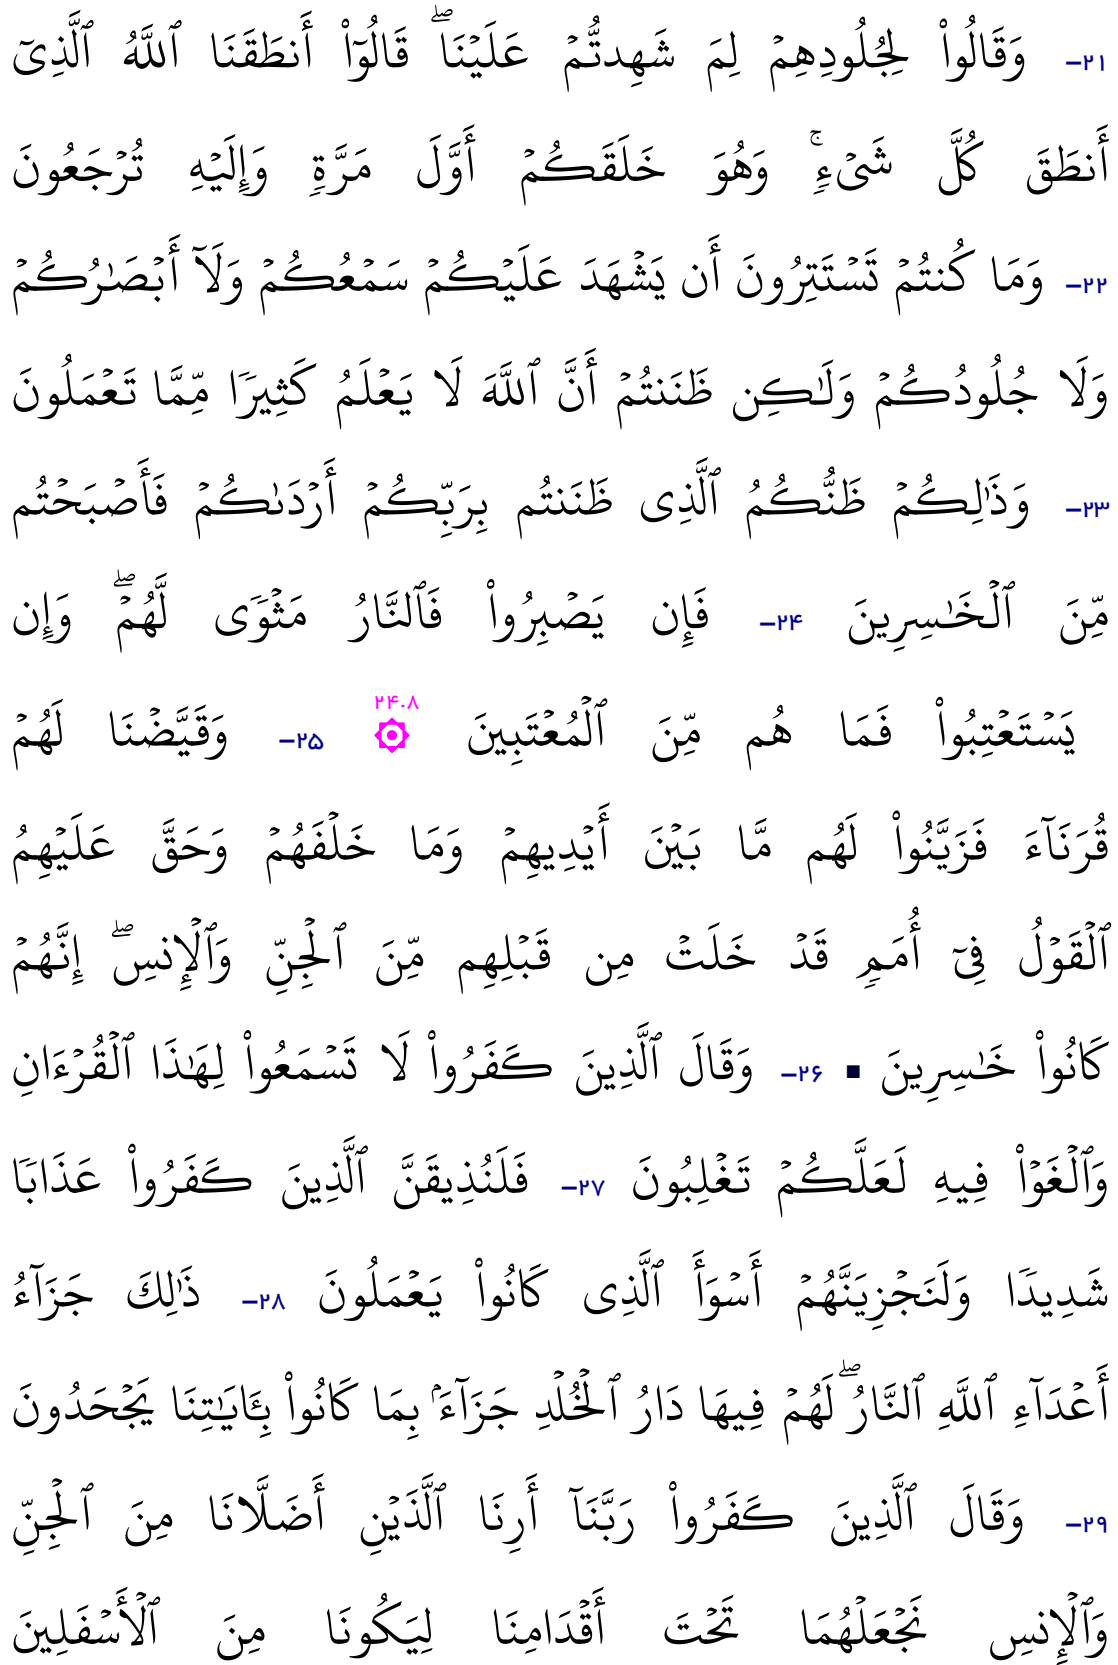 ۲۱- وَقَالُوا۟ لِجُلُودِهِمْ لِمَ شَهِدتُّمْ عَلَيْنَا ۖ قَالُوٓا۟ أَنطَقَنَا ٱللَّهُ ٱلَّذِىٓ
أَنطَقَ كُلَّ شَىْءٍۢ ۚ وَهُوَ خَلَقَكُمْ أَوَّلَ مَرَّةٍۢ وَإِلَيْهِ تُرْجَعُونَ
۲۲- وَمَا كُنتُمْ تَسْتَتِرُونَ أَن يَشْهَدَ عَلَيْكُمْ سَمْعُكُمْ وَلَآ أَبْصَـٰرُكُمْ
وَلَا جُلُودُكُمْ وَلَـٰكِن ظَنَنتُمْ أَنَّ ٱللَّهَ لَا يَعْلَمُ كَثِيرًۭا مِّمَّا تَعْمَلُونَ
۲۳- وَذَٰلِكُمْ ظَنُّكُمُ ٱلَّذِى ظَنَنتُم بِرَبِّكُمْ أَرْدَىٰكُمْ فَأَصْبَحْتُم
مِّنَ ٱلْخَـٰسِرِينَ ۲۴- فَإِن يَصْبِرُوا۟ فَٱلنَّارُ مَثْوًۭى لَّهُمْ ۖ وَإِن
يَسْتَعْتِبُوا۟ فَمَا هُم مِّنَ ٱلْمُعْتَبِينَ ۞ ۲۴.۸ ۲۵- وَقَيَّضْنَا لَهُمْ
قُرَنَآءَ فَزَيَّنُوا۟ لَهُم مَّا بَيْنَ أَيْدِيهِمْ وَمَا خَلْفَهُمْ وَحَقَّ عَلَيْهِمُ
ٱلْقَوْلُ فِىٓ أُمَمٍۢ قَدْ خَلَتْ مِن قَبْلِهِم مِّنَ ٱلْجِنِّ وَٱلْإِنسِ ۖ إِنَّهُمْ
كَانُوا۟ خَـٰسِرِينَ ▪ ۲۶- وَقَالَ ٱلَّذِينَ كَفَرُوا۟ لَا تَسْمَعُوا۟ لِهَـٰذَا ٱلْقُرْءَانِ
وَٱلْغَوْا۟ فِيهِ لَعَلَّكُمْ تَغْلِبُونَ ۲۷- فَلَنُذِيقَنَّ ٱلَّذِينَ كَفَرُوا۟ عَذَابًۭا
شَدِيدًۭا وَلَنَجْزِيَنَّهُمْ أَسْوَأَ ٱلَّذِى كَانُوا۟ يَعْمَلُونَ ۲۸- ذَٰلِكَ جَزَآءُ
أَعْدَآءِ ٱللَّهِ ٱلنَّارُ ۖ لَهُمْ فِيهَا دَارُ ٱلْخُلْدِ جَزَآءًۢ بِمَا كَانُوا۟ بِـَٔايَـٰتِنَا يَجْحَدُونَ
۲۹- وَقَالَ ٱلَّذِينَ كَفَرُوا۟ رَبَّنَآ أَرِنَا ٱلَّذَيْنِ أَضَلَّانَا مِنَ ٱلْجِنِّ
وَٱلْإِنسِ نَجْعَلْهُمَا تَحْتَ أَقْدَامِنَا لِيَكُونَا مِنَ ٱلْأَسْفَلِينَ